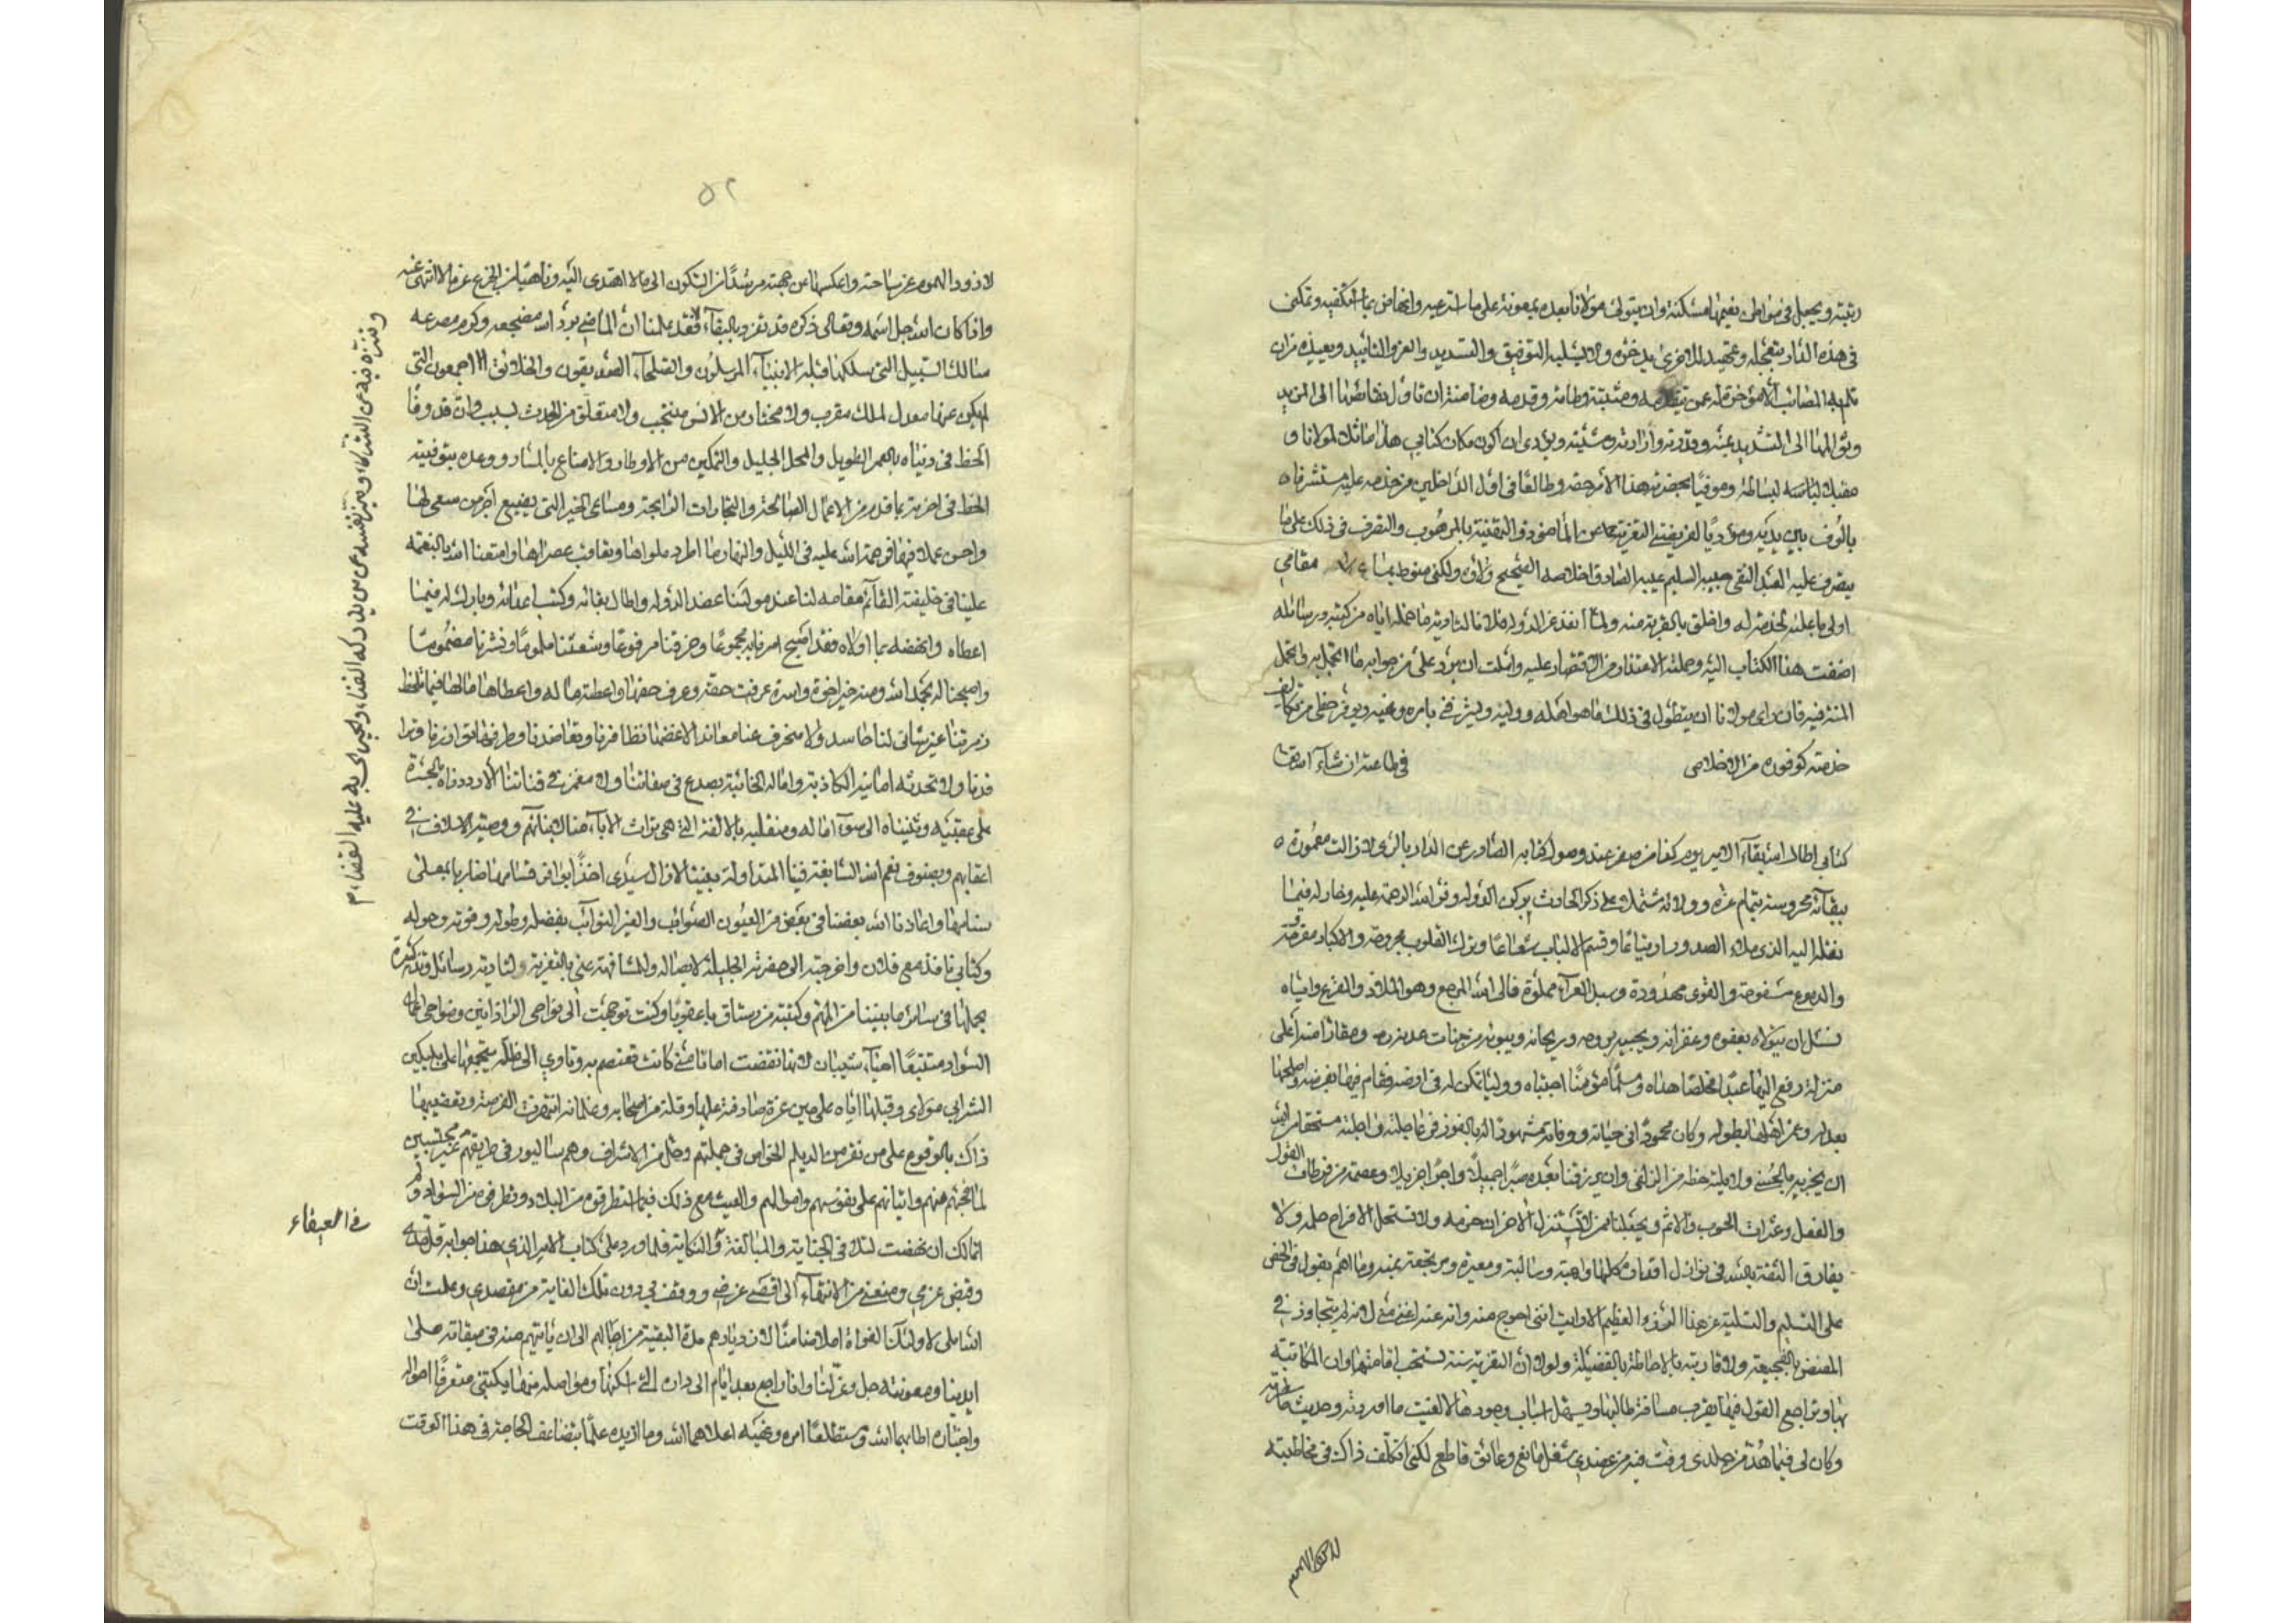 رغبته ويجعل في مواطن نعيمها مسكنه وان يتولى مولانا بعده بمعونته على ما استرعيه وانهاض بما استكفيه وتمكين
في هذه الدار بتعجله وتمهيد للاخرى يدخره ولا يسلبه التوفيق والتسديد والعز والتاييد ويعيذه من ان
تلم به المصائب الا مؤخرة له عمن تقدمه ومثبتة وطاته وقدمه وضامنة ان تاول نقائضها الى المزيد
المها الى التشديد بمنه وقدرته وارادته ومشيته وبودي ان اكون مكان كتابي هذا ماثلا لمولانا و
مقبلا لبساطه وموفيا بحضرته هذا الامر حقه وطالعا في اول الداخلين من خدمه عليه متشرفا
بالوقوف بين يديه ومؤديا لفريضتي التعزية عن الماضي والتهنية بالموهوب والتصرف في ذلك على ما
يتصرف عليه العبد النقي جيبه السليم غيبه الصادق اخلاصه الصحيح ولاؤه ولكني منوط بما مقامي
اولى ما علته لخدمته له واخلق بالقربة منه ولما انفذ عز الدولة فلانا لتادية ما حمله اياه من كتبه ورسائله
اضفت هذا الكتاب اليه وحملته الاعتذار من الاقتصار عليه واملت ان يرد على من جوابه ما اتجمل به واتحمل
المنة فيه فان راى مولانا ان يتطول في ذلك بما هو اهله ووليه ويشرفني بامره ونهيه ويوفر حظي من تكاليف
خدمته كوفوره من الاخلاص في طاعته ان شاء الله تعالى
كتابي اطال الله بقاء الامير يوم كذا من صفر عند وصول كتابه الصادر عن الدار بالري لا زالت معمورة
ببقائه محروسة بتمام عزه وولائه مشتملا على ذكر الحادث بركن الدولة وفرا الله الرحمة عليه وخار له فيما
نقله اليه الذي ملاء الصدور ارتياعا وقسم الالباب شعاعا وترك القلوب مجروحة والاكباد مقروحة
والدموع مسفوحة والقوى مهدودة وسبل العزاء مملوة فالى الله المرجع وهو الملاذ والمفزع واياه
نسئل ان يتولاه بعفوه وغفرانه ويحييه بروحه وريحانه ويبوئه من جنات عدنه ومقار امنه اعلى
منزلة رفع اليها عبدا مخلصا هداه ومسلما مؤمنا اجتباه ووليا مكن له في ارضه فقام فيها بفرضه واصلحها
بعدله وعم اهلها بطوله وكان محمودا في حياته ووفاته مشهودا له بالفوز في عاجلته واجلته مستحقا من الله
ان يجزيه بالحسنى ولا يلته حظه من الزلفى وان يرزقنا بعده صبرا جميلا واجرا جزيلا وعصمة من فرطات القول
والفعل وعثرات الحوب والاثم ويجعلنا ممن لا تستنزل الاحزان حزمه ولا تستحل الافراح حلمه ولا
يفارق الثقة بالله في نوازل اقداره كلها واهبة وسالبة ومعيرة ومرتجعة بمنه وما اهم بقول في الحض
على التسليم والتسلية عن هذا الرزء العظيم الا رايت انني احوج منه وانه عنه اغنى مني لانه لم يتجاوزني في
المضض بالفجيعة ولا قاربته بالاحاطة بالفضيلة ولولا ان التعزية سنة تستحب اقامتها وان المكاتبة
بها وتراجع القول فيها يقرب مسافة طالبها ويسهل اسباب وجودها لالغيت ما اوردته وحديث ما
وكان لي فيما هد من جلدي وفت فيه من عضدي شغل مانع وعائق قاطع لكني اتكلف ذاك في مخاطبته
٥٢
لاذود الهموم عن ساحته واعكسها عن جهته مرشدا من السكون الى ما لا اهتدى اليه وناهيا من الجزع عن ما لا انتهى عنه
واذا كان الله جل اسمه وتعالى ذكره قد تفرد بالبقاء فقد علمنا ان الماضي برد الله مضجعه وكرم مصرعه
سالك السبيل التي سلكها قبله الانبياء المرسلون والصلحاء الصديقون والخلائق اجمعون التي
لم يكن عنها معدل لملك مقرب ولا مختار من الانس منتخب ولا متعلق من الحدث بسبب وان قد وفا
الحظ في دنياه بالعمر الطويل والمحل الجليل والتمكين من الاوطار والامتاع بالمسار ووعده بتوفيته
الحظ في اخرته بما قدم من الاعمال الصالحة والتجارات الرابحة ومساعى الخير التي لا يضيع اجر من سعى لها
واحسن عملا فيها فرحمة الله عليه في الليل والنهار ما اطرد ملواهما وتعاقب عصراهما وامتعنا الله بالنعمة
علينا في خليفته القائم مقامه لنا عند مولانا عضد الدولة واطال بقائه وكبت اعدائه وبارك له فيما
اعطاه وانهضه بما اولاه فقد اصبح امرنا به مجموعا وخرقنا مرفوعا وشعثنا ملموما ونشرنا مضموما
واصبحنا له بحمد الله ومنه خير اخوة واسرة عرفت حقه وعرف حقها واعطته ما له واعطاها ما لها فيما تلحظ
زمرتنا عين شانى لنا حاسد ولا منحرف عنا معاند الا غضها تظافرنا وتعاضدنا وطرفها توازرنا وترا
فدنا ولا تحدثه امانيه الكاذبة واماله الخائبة بصدع في صفاتنا ولا مغمز في قناتنا الا رددناه بالحسرة
على عقبيه وثنيناه الى سوء اماله ومنقلبه بالالفة التي هي تراث الاباء منا لابنائهم ووصية الاسلاف في
اعقابهم وبصنوف نعم الله السابغة فينا المتداولة بيننا لا زال سيدى اخذا بوافر قسامها ضاربا بمعلى
سهامها واعاذنا الله بعضنا في بعض من العيون الصوائب والغير النوائب بفضله وطوله وقوته وحوله
وكتابي نافذ مع فلان واخرجته الى حضرته الجليلة لايصاله والمشافهة عني بالتعزية ولتادية رسائل وتذكرة
يحملها في سائر ما بيننا من المهم وكتبته من رستاق باعقوبا وكنت توجهت الى نواحى الراذانين ونواحى اعمال
السواد متتبعا احياء شيبان لانها نقضت امانا مني كانت تعتصم به وتاوي الى ظله بتجمعها على بلبكين
الشرابي مولاى وقتلها اياه على حين غرة صادفته عليها وقلة من اصحابه وغلمانه انتهزت الفرصة وتعقبها
ذاك بالوقوع على من نفر من الديلم الخواص في جملتهم وحل من الاشراف وهم سائرون في طريقهم غير محتسبين
لما فجئهم منهم واتيانهم على نفوسهم واموالهم والعيث مع ذلك فيما تتطرقه من البلاد وتطرفه من السواد ولم
اتمالك ان نهضت لتلافي الجناية والمبالغة في النكاية فلما ورد على كتاب الامير الذي هذا جوابه
وقبض عزمي ومنعني من الانتهاء الى اقصى غرضي ووقف بي دون تلك الغاية من مقصدي وعلمت ان
الله املى لاولئك الغواة املاء منا لازديادهم مدة البقية من اجالهم الى ان ياتيهم منه في ميقاته صلى
ايدينا ومعونته جل وعز لنا وانا راجع بعد ايام الى داره التي اسكنها ومواصله منها بكتبي متعرفا احواله
واخباره اطابهما الله ومستطلعا امره ونهيه اعلاهما الله وما ازيده علما بتضاعف الحاجة في هذا الوقت
ونتنزه فيه عن الشركاء وميز نفسه عن من يدركه الفناء ويجرى به عليه القضاء م